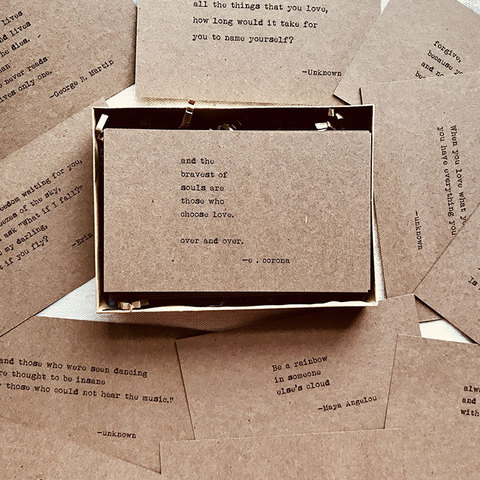 lives
he died.
man
never reads
lives only one.
—George R. Martin
all the things that you love,
how long would it take for
you to name yourself?
—Unknown
forgive,
because
and
When you love what
you have everything you
—unknown
and the
bravest of
souls are
those who
choose love.
over and over.
—e . corona
freedom waiting for you,
of the sky,
ask "What if I fall?"
my darling,
if you fly?
—Erin
and those who were seen dancing
thought to be insane
those who could not hear the music."
—unknown
Be a rainbow
in someone
else's cloud
—Maya Angelou
and
with